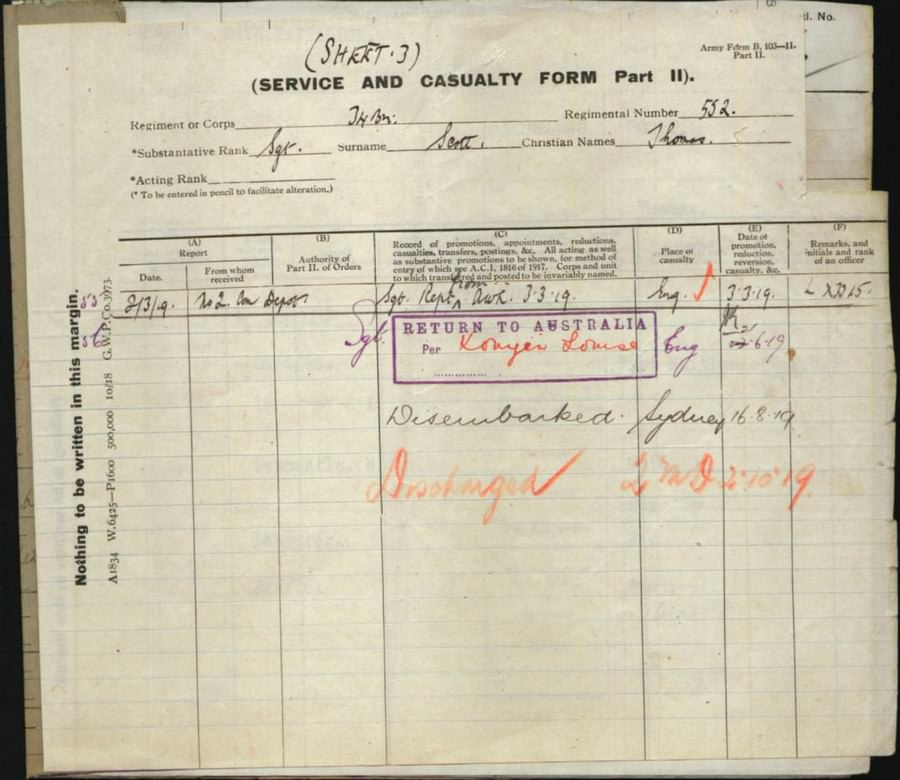 d. No.
(SHEET·3)
Army Form B. 103—II.
Part II.
(SERVICE AND CASUALTY FORM Part II).
Regiment or Corps Regimental Number 552.
*Substantative Rank Sgt. Surname Scott. Christian Names Thomas.
*Acting Rank
(* To be entered in pencil to facilitate alteration.)
(A)
Report
Date.
From whom
received
(B)
Authority of
Part II. of Orders
(C)
Record of promotions, appointments, reductions,
casualties, transfers, postings, &c. All acting as well
as substantive promotions to be shown, for method of
entry of which see A.C.I. 1816 of 1917. Corps and unit
to which transferred and posted to be invariably named.
(D)
Place of
casualty
(E)
Date of
promotion,
reduction,
reversion,
casualty, &c.
(F)
Remarks, and
initials and rank
of an officer
8/3/19. No 2. Depot Sgt. Rept from 3·3·19. Eng. 3·3·19.
Sgt. RETURN TO AUSTRALIA
Per Konigin Louise Eng 6·19
Disembarked. Sydney 16·8·19
Discharged 2 MD 2·10·19
Nothing to be written in this margin.
A1834 W.6425—P1600 500,000 10/18 G.W.P.Co.3973.